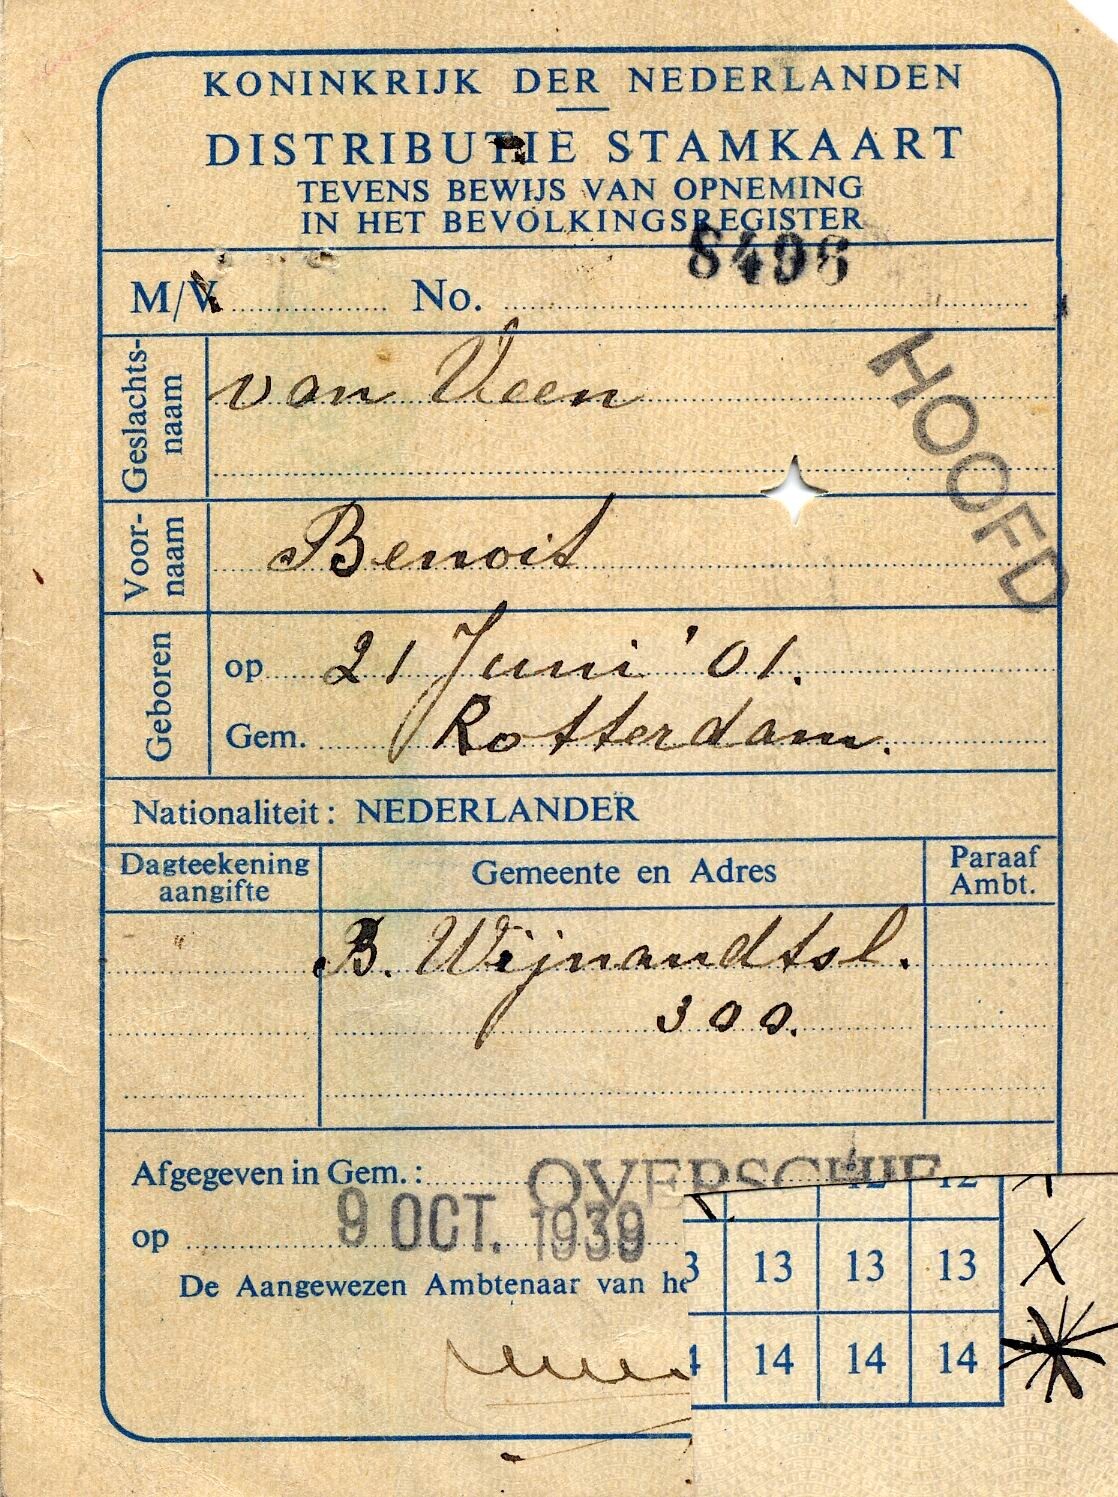 KONINKRIJK DER NEDERLANDEN
DISTRIBUTIE STAMKAART
TEVENS BEWIJS VAN OPNEMING
IN HET BEVOLKINGSREGISTER
8496
M/V. No.
HOOFD
Geslachts-
naam
van Veen
Voor-
naam
Benoit
Geboren
op 21 Juni '01.
Gem. Rotterdam.
Nationaliteit: NEDERLANDER
Dagteekening
aangifte
Gemeente en Adres
Paraaf
Ambt.
B. Wijnandtsl.
300.
Afgegeven in Gem.: OVERSCHIE
op 9 OCT. 1939
De Aangewezen Ambtenaar van he
12 12
3 13 13 13 X
4 14 14 14